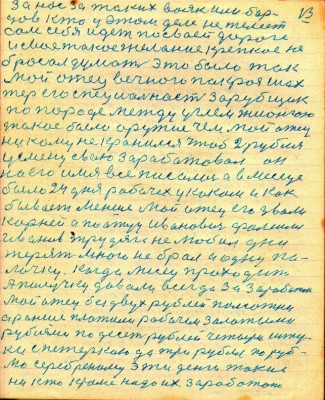 13
за нос за таких вояк или бор-
цов кто у этом деле не
сам себя идет по своей дороге
и свое такое желание крепкое не
бросал думать Это было так
Мой отец вечного покроя шах
тер его специалность Зарубщик
по породе между углем
такое было оружие чем мой отец
ни кому не кранился чтоб 2 рубля
у смену свою заработовал он
на его имя все писалис а в месеце
было 24 дня рабочех у каком и как
бывает менше Мой отец его звали
Корней а по отцу Иванович фамилия
Иванов трудяга не любил дни
терят много не брал и одну па-
лочку. Когда месец проходит
А получку довали всегда За Заработок
Мой отец без двух рублей полсотни
а ранше платили рабочем Залотыми
рублями по десет рублей четыри шту
ки спетеркою да три рубля по руб-
лю серебреному Эти денги такие
ни кто кроме надо их заработат